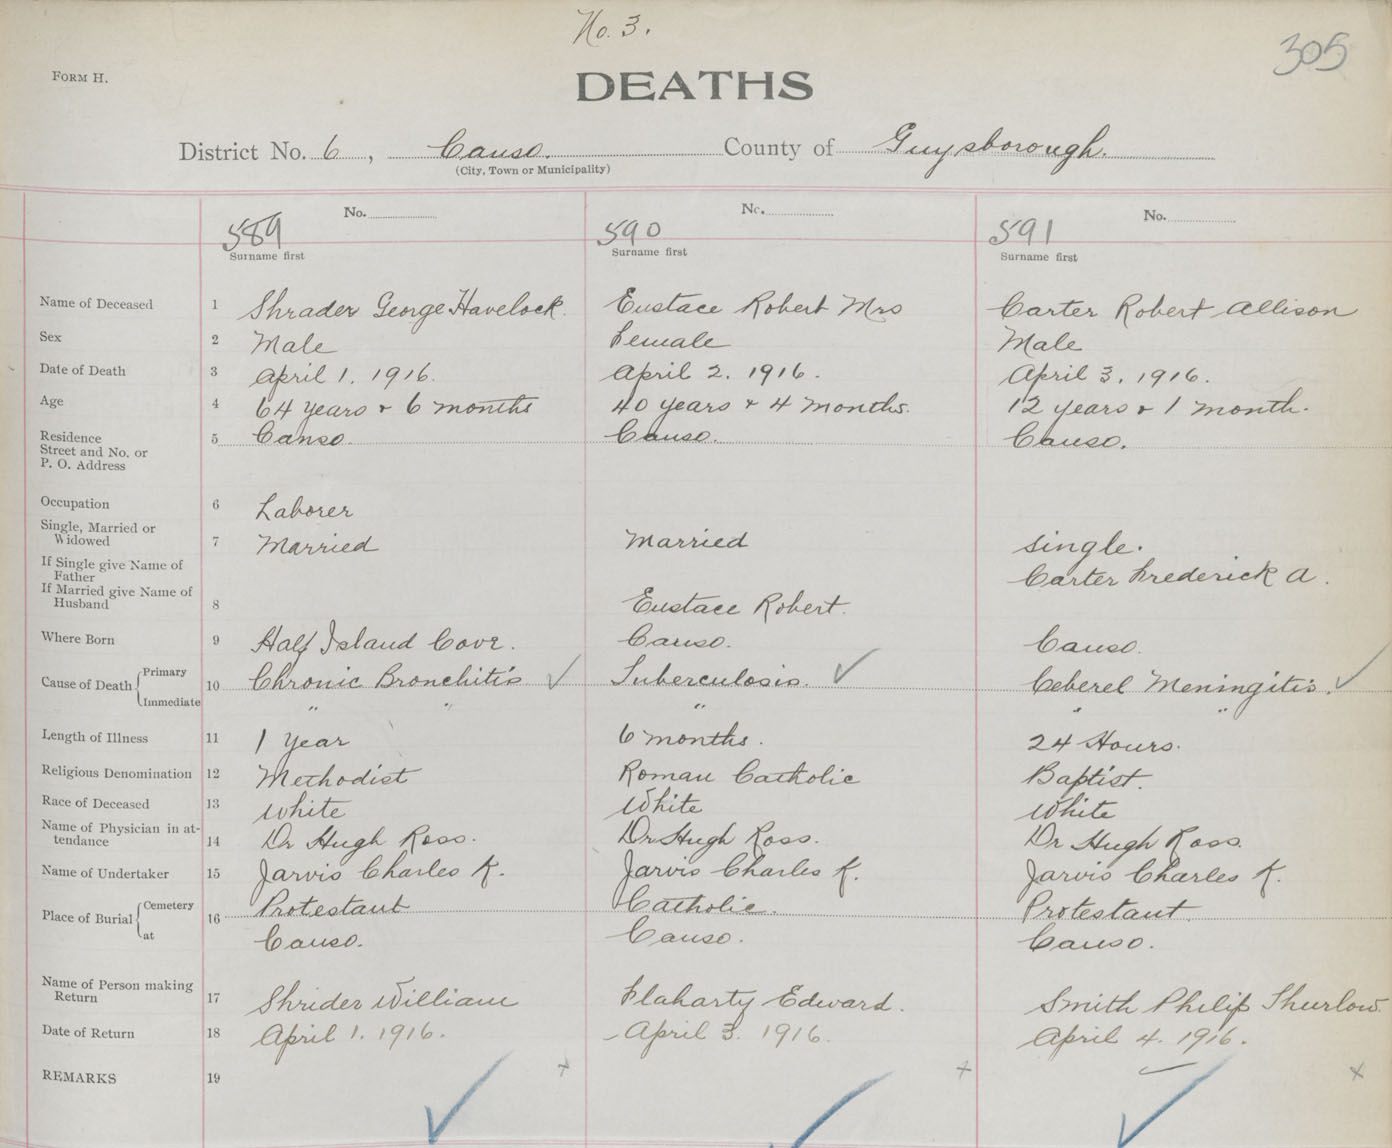 No. 3.
305
FORM H.
DEATHS
District No. 6, Canso. County of Guysborough.
(City, Town or Municipality)
No. No. No.
589 590 591
Surname first Surname first Surname first
Name of Deceased 1 Shrader George Havelock. Eustace Robert Mrs Carter Robert Allison
Sex 2 Male Female Male
Date of Death 3 April 1. 1916. April 2. 1916. April 3. 1916.
Age 4 64 years & 6 months 40 years & 4 months. 12 years & 1 month.
Residence Street and No. or P. O. Address 5 Canso. Canso. Canso.
Occupation 6 Laborer
Single, Married or Widowed 7 Married Married single.
If Single give Name of Father Carter Frederick A.
If Married give Name of Husband 8 Eustace Robert.
Where Born 9 Half Island Cove. Canso. Canso.
Cause of Death { Primary 10 Chronic Bronchitis Tuberculosis. Ceberel Meningitis.
Immediate " " " " "
Length of Illness 11 1 year 6 months. 24 Hours.
Religious Denomination 12 Methodist Roman Catholic Baptist.
Race of Deceased 13 White White White
Name of Physician in attendance 14 Dr Hugh Ross. Dr Hugh Ross. Dr Hugh Ross.
Name of Undertaker 15 Jarvis Charles K. Jarvis Charles K. Jarvis Charles K.
Place of Burial { Cemetery 16 Protestant Catholic. Protestant.
at Canso. Canso. Canso.
Name of Person making Return 17 Shrider William Flaharty Edward. Smith Philip Thurlow.
Date of Return 18 April 1. 1916. April 3. 1916. April 4. 1916.
REMARKS 19 x x x